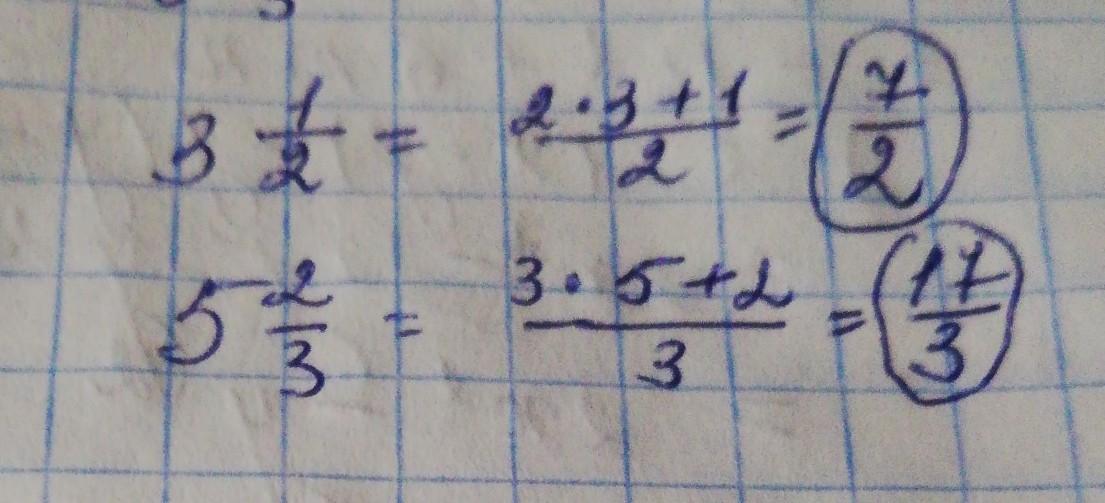 3 1/2 = (2·3+1)/2 = 7/2
5 2/3 = (3·5+2)/3 = 17/3